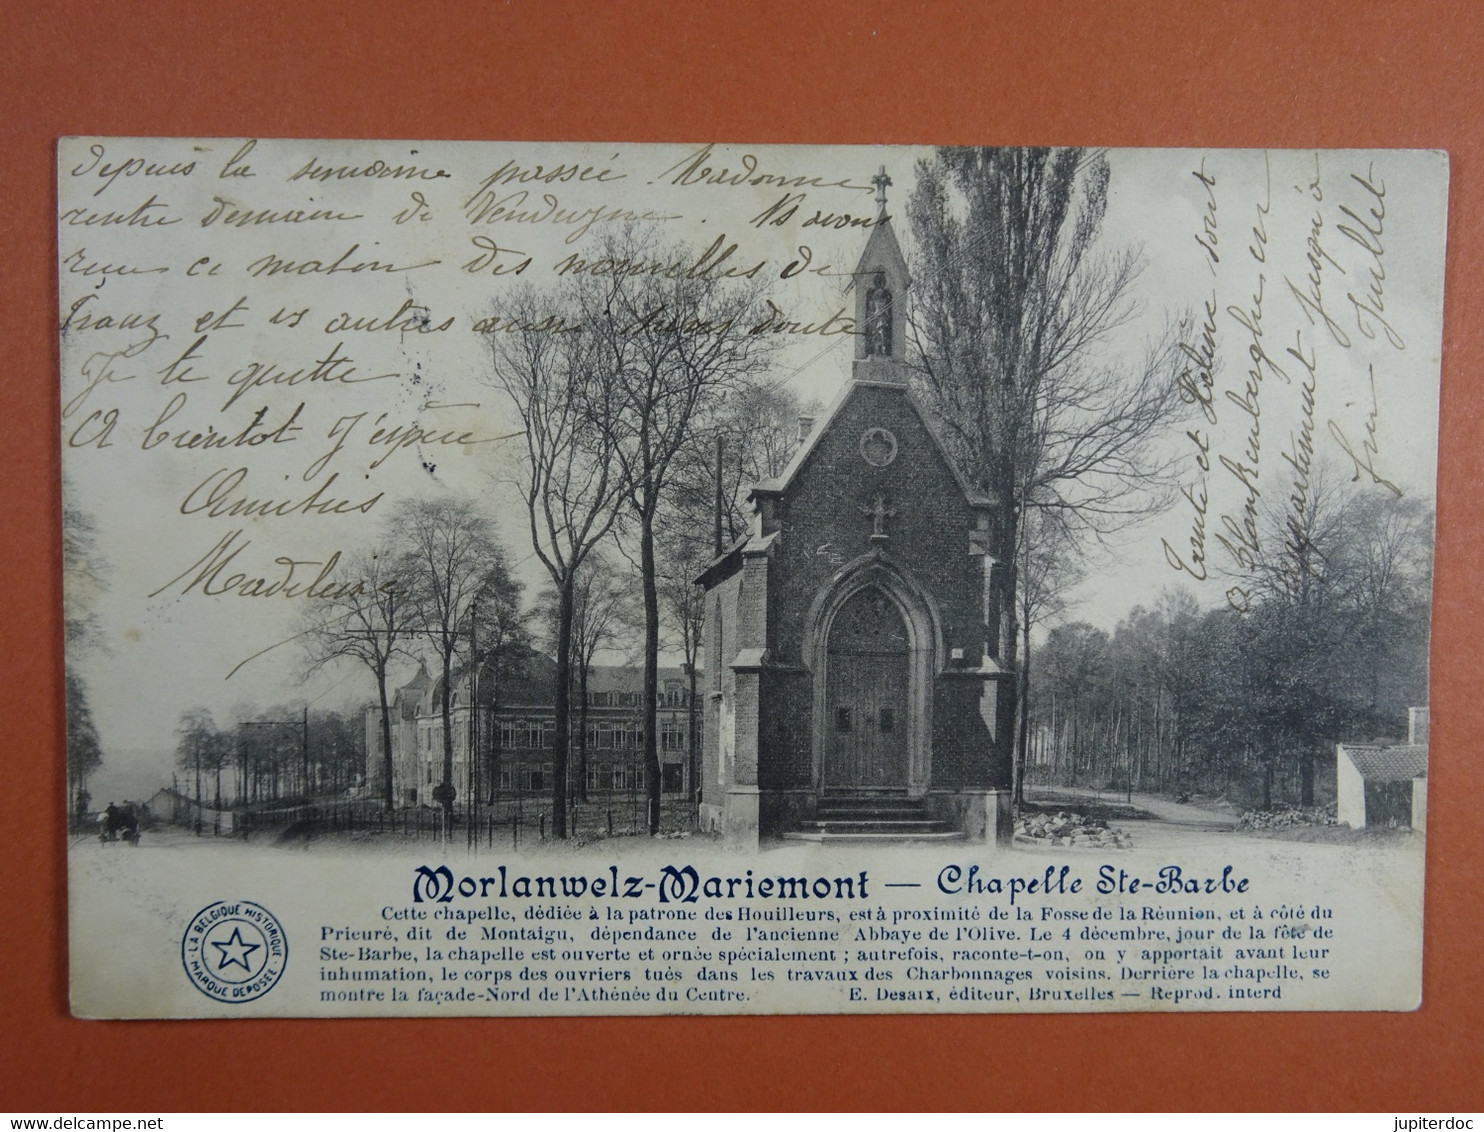 depuis la semaine passée. Madonne
rentre demain de
reçu ce matin des nouvelles de
Franz et les autres aussi sans doute
Je te quitte
A bientôt j'espère
Amitiés
Madeleine
Tante et Hélène sont
à Blankenberghe en
appartement jusqu'à
fin Juillet
Morlanwelz-Mariemont — Chapelle Ste-Barbe
Cette chapelle, dédiée à la patrone des Houilleurs, est à proximité de la Fosse de la Réunion, et à côté du
Prieuré, dit de Montaigu, dépendance de l'ancienne Abbaye de l'Olive. Le 4 décembre, jour de la fête de
Ste-Barbe, la chapelle est ouverte et ornée spécialement ; autrefois, raconte-t-on, on y apportait avant leur
inhumation, le corps des ouvriers tués dans les travaux des Charbonnages voisins. Derrière la chapelle, se
montre la façade-Nord de l'Athénée du Centre. E. Desaix, éditeur, Bruxelles — Reprod. interd
LA BELGIQUE HISTORIQUE
MARQUE DEPOSÉE
jupiterdoc